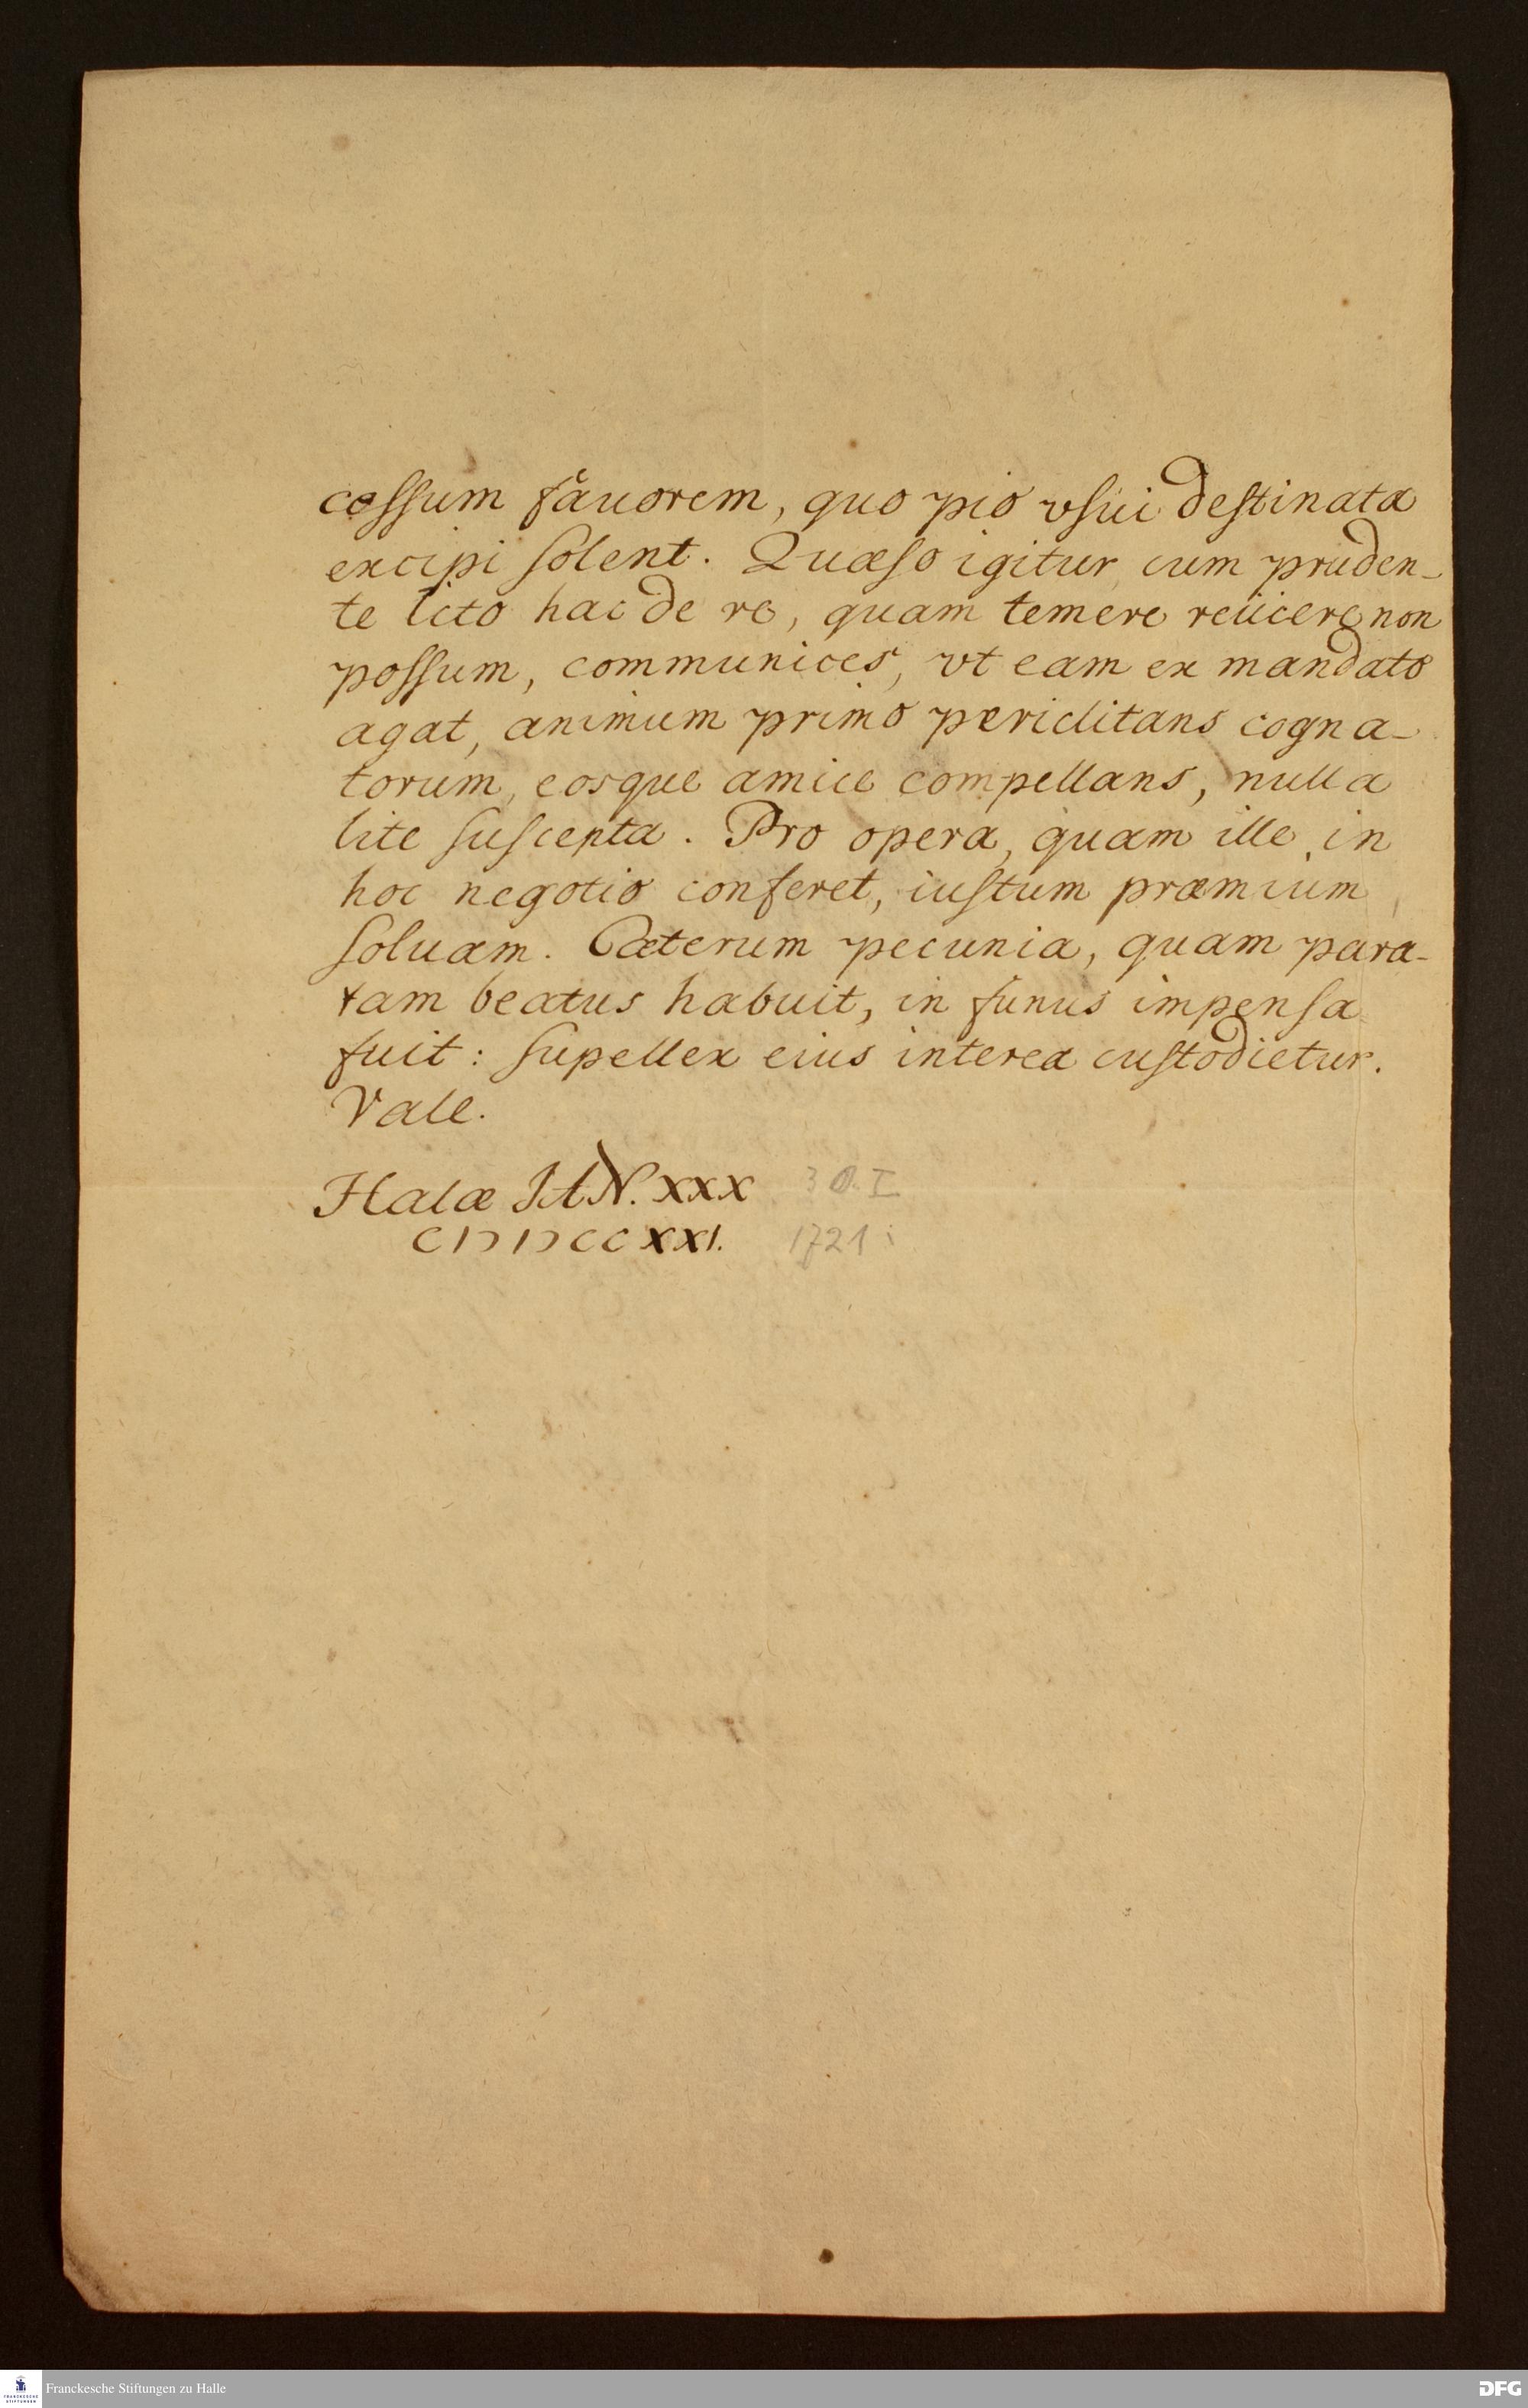 cessum fauorem, quo pio vsui destinata
excipi solent. Quæso igitur cum pruden-
te Icto hac de re, quam temere reiicere non
possum, communices, vt eam ex mandato
agat, animum primo periclitans cogna-
torum, eosque amice compellans, nulla
lite suscepta. Pro opera, quam ille in
hoc negotio conferet, iustum præmium
soluam. Cæterum pecunia, quam para-
tam beatus habuit, in funus impensa
fuit: supellex eius interea custodietur.
Vale.
Halæ IAN. XXX 30. I
CIↃIↃCCXXI. 1721
FRANCKESCHE STIFTUNGEN Franckesche Stiftungen zu Halle DFG